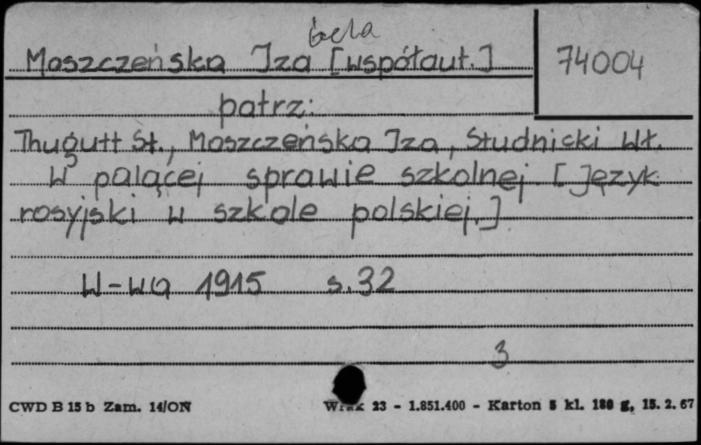 bela
Moszczeńska Iza [współaut.]
74004
patrz:
Thugutt St., Moszczeńska Iza, Studnicki Wł.
W palącej sprawie szkolnej [Język
rosyjski w szkole polskiej.]
W-wa 1915 s.32
3
CWD B 15 b Zam. 14/ON
23 - 1.851.400 - Karton 5 kl. 180 g, 15. 2. 67